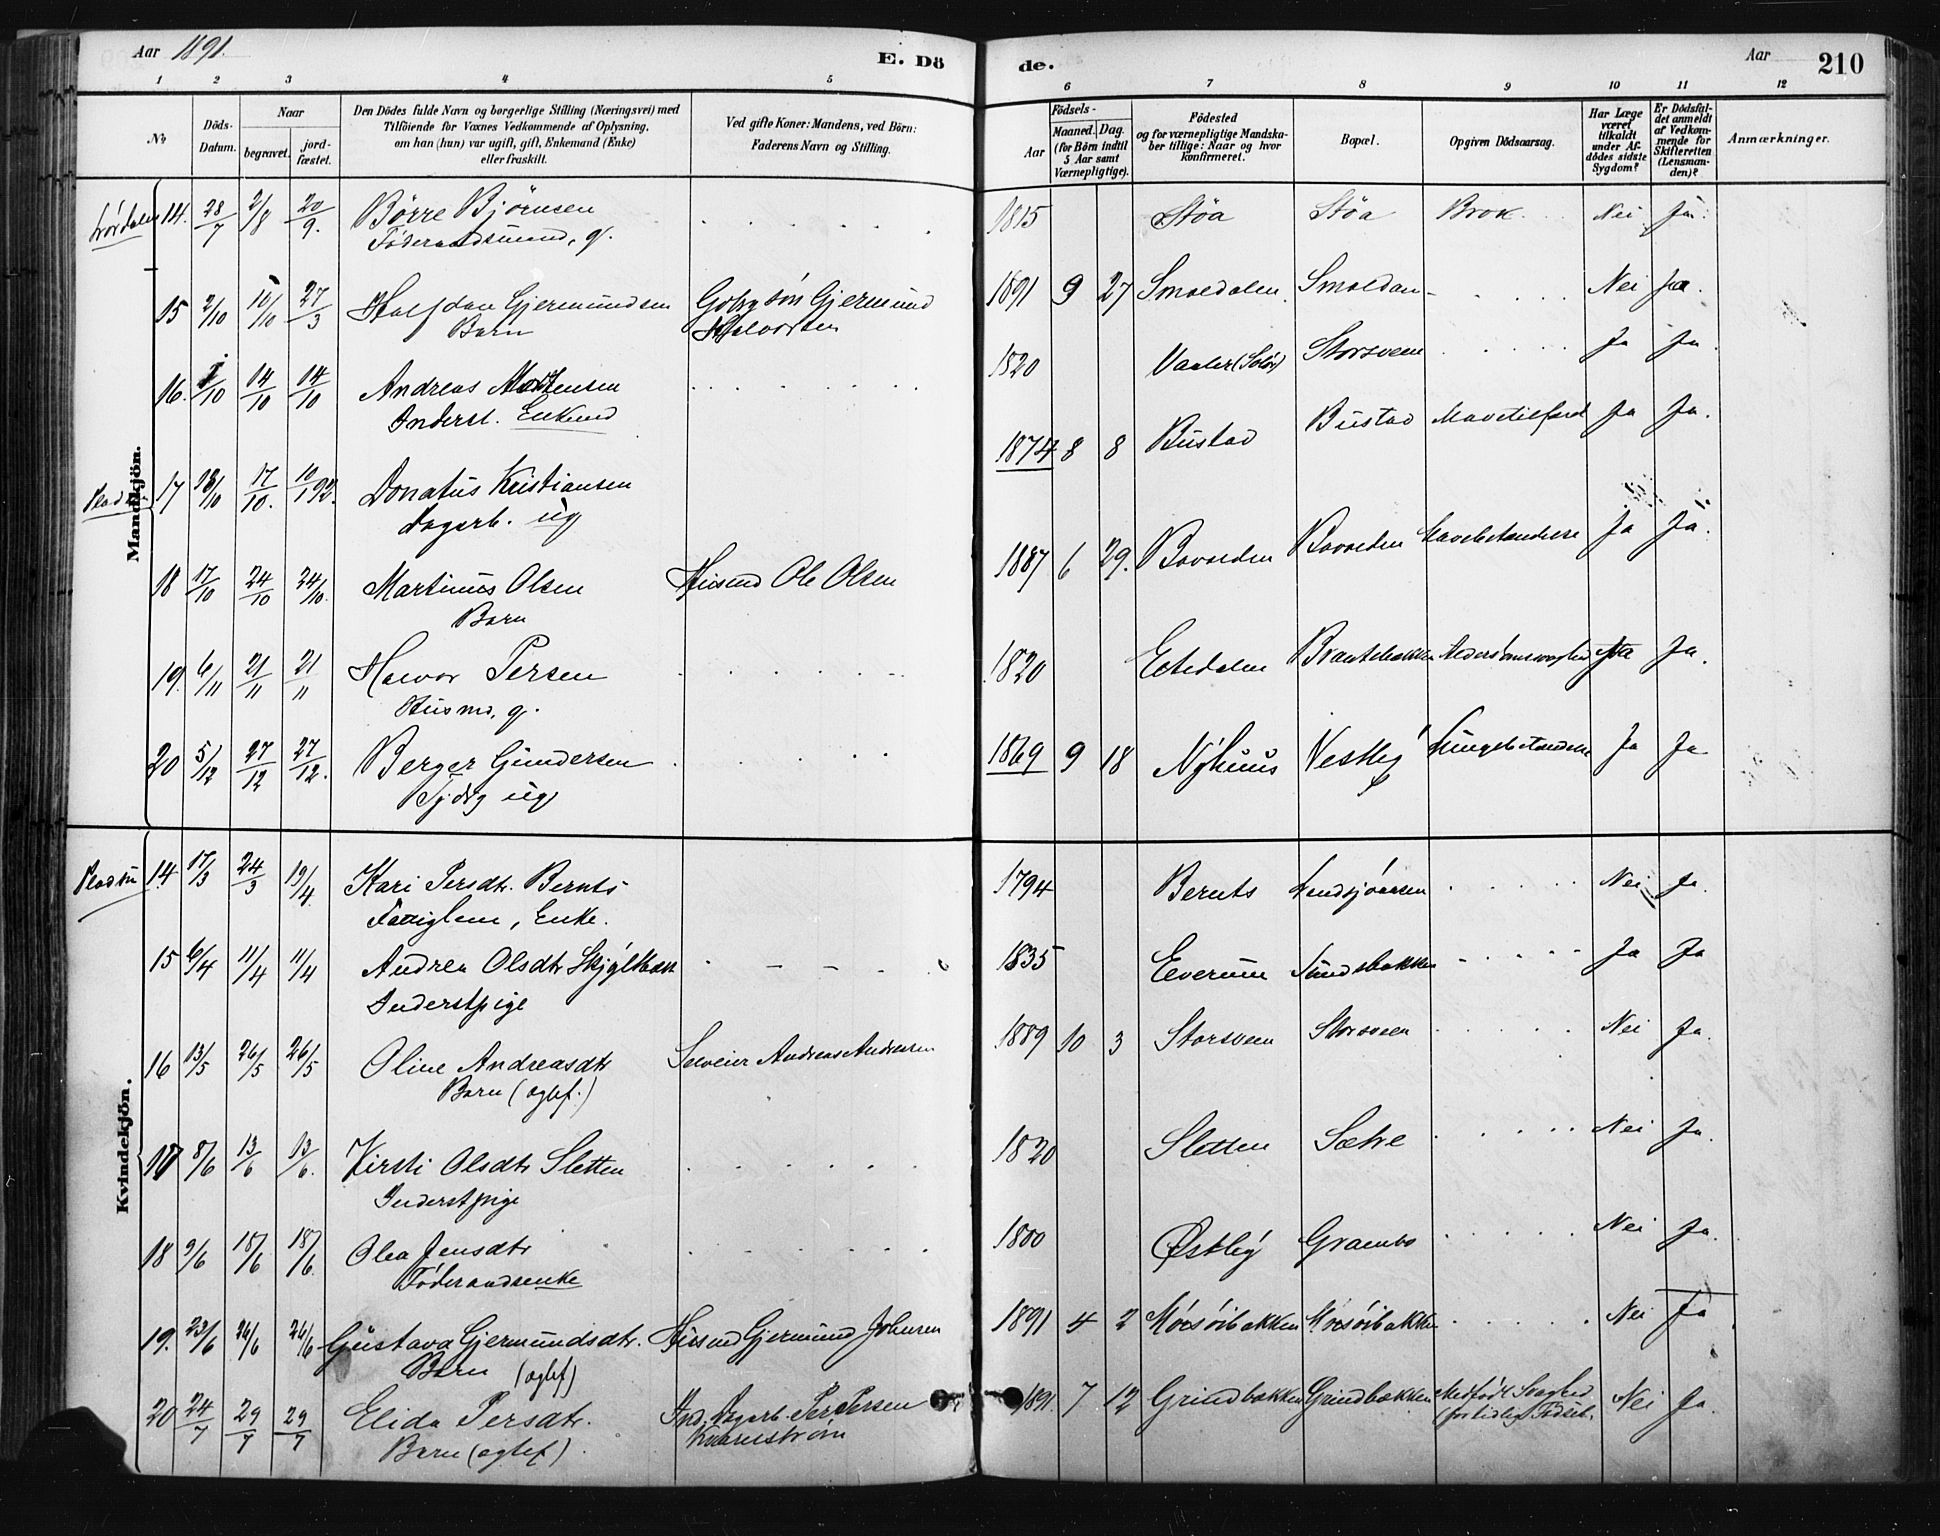 Aar 1891. E. Dö de. Aar 210
1 2 3 4 5 6 7 8 9 10 11 12
No. Döds-Datum. Naar begravet. jord-fæstet. Den Dödes fulde Navn og borgerlige Stilling (Næringsvei) med Tilföiende for Voxnes Vedkommende af Oplysning, om han (hun) var ugift, gift, Enkemand (Enke) eller fraskilt. Ved gifte Koner: Mandens, ved Børn: Faderens Navn og Stilling. Födsels- Aar Maaned. Dag. (for Börn indtil 5 Aar samt Værnepligtige). Födested og for værnepligtige Mandskaber tillige: Naar og hvor konfirmeret. Bopæl. Opgiven Dödsaarsag. Har Læge været tilkaldt under Afdödes sidste Sygdom? Er Dödsfaldet anmeldt af Vedkommende for Skifteretten (Lensmanden)? Anmærkninger.
Mandkjön.
14. 28/7 2/8 20/9. Börre Björnsen 1815 Støa Støa Brok. Nei Ja.
Föderaadsmand, g.
15 2/10 10/10 27/3 Halfdan Gjermundsen Gjermund 1891 9 27 Smoldalen Smoldan Nei Ja.
Barn Halvorsen
16. /10 14/10 14/10 Andreas Mortensen 1820 Vaaler (Solör) Storsveen Ja Ja.
Inderst. Enkemd
17 /10 17/10. 10/1 92. Donatus Kristiansen 1874 8 8 Bustad Bustad Ja Ja.
Dagarb. ug
18 17/10 24/10 24/10. Martinus Olsen Husmd Ole Olsen 1887 6 29. Ja Ja.
Barn
19. 6/11 21/11 21/11 Halvor Persen 1820 Ja.
Husmd, g.
20 5/12 27/12 27/12. Berger Gundersen 1869 9 18 Nyhuus Nestby Lungebetændelse Ja Ja
ug
Kvindekjön.
14 17/3 24/3 19/4. Kari Persdtr. Bernts 1794 Bernts Nei Ja.
Enke.
15 6/4 11/4 11/4 Andrea Olsdtr 1835 Elverum Sundsbakken Ja Ja
Inderstpige
16 13/5 26/5 26/5 Oline Andreasdtr Selveier Andreas Andresen 1889 10 3 Storsveen Storsveen Nei Ja.
Barn (ægtef.)
17 8/6 13/6 13/6. Kirsti Olsdtr Sletten 1820 Sletten Sætre Nei Ja.
Inderstpige
18 9/6 18/6 18/6. Olea Jensdtr 1800 Østby Grambo Nei Ja.
Föderaadsenke
19. 23/6 26/6 26/6 Gustava Gjermundsdtr. Husmd Gjermund Johnsen 1891 4 2 Nei Ja
Barn (ægtef)
20 24/7 29/7 29/7 Elida Persdtr. Ind. Dagarb. Per Persen 1891. 7 12 Grindbakken Grindbakken Medfødt Svaghed Nei Ja.
Barn (ægtef). Kvarnström (for tidlig Födsel.